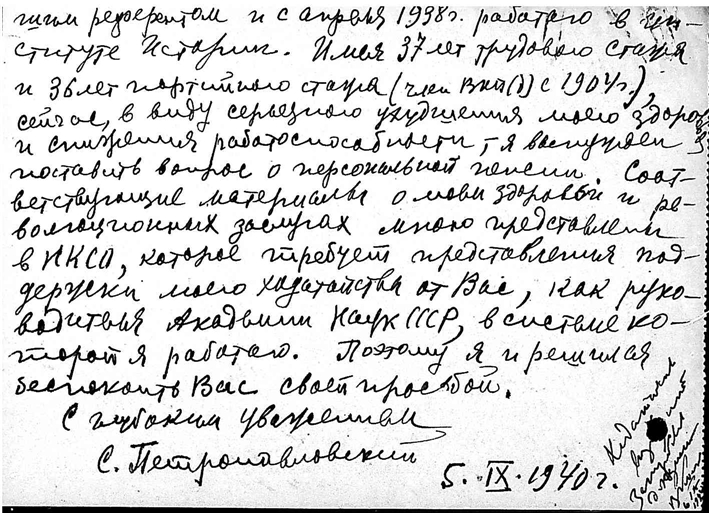 шим референтом и с апреля 1938г. работаю в Ин-
ституте Истории. Имея 37 лет трудового стажа
и 36 лет партийного стажа (член ВКП(б) с 1904г.),
сейчас, в виду серьезного ухудшения моего здоровья
и снижения работоспособности, я вынужден
поставить вопрос о персональной пенсии. Соот-
ветствующие материалы о моем здоровьи и ре-
волюционных заслугах мною представлены
в НКСО, которое требует представления под-
держки моего ходатайства от Вас, как руко-
водителя Академии Наук СССР, в системе ко-
торой я работаю. Поэтому я и решился
беспокоить Вас своей просьбой.
С глубоким уважением
С. Петропавловский
5. IX. 1940 г.